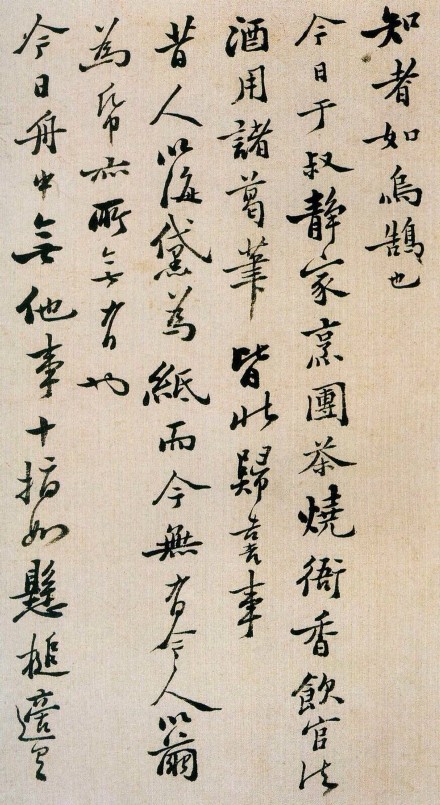 知者如烏鵠也
今日于叔静家烹團茶燒衙香飲官法
酒用諸葛筆皆北歸喜事
昔人以海黛為紙而今無有今人以繭
為帋亦所無有也
今日舟中無他事十指如懸槌適